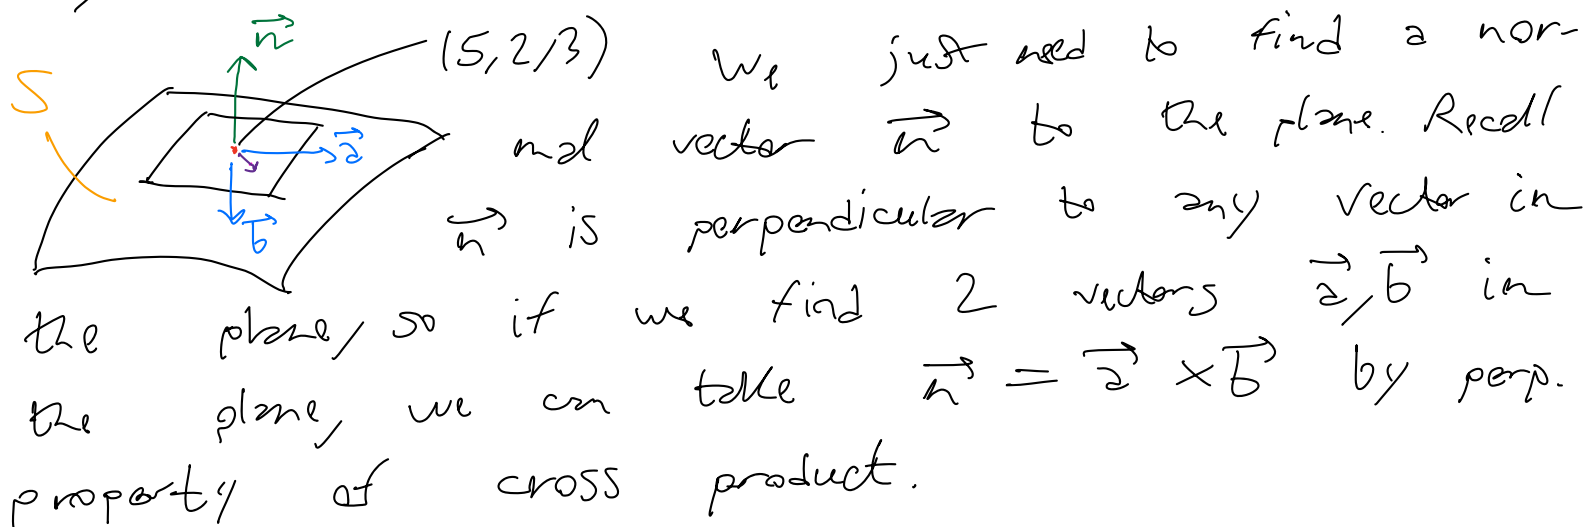 \vec{n}
(5,2,3) We just need to find a nor-
S
mal vector \vec{n} to the plane. Recall
\vec{a}
\vec{n} is perpendicular to any vector in
\vec{b}
the plane, so if we find 2 vectors \vec{a}, \vec{b} in
the plane, we can take \vec{n} = \vec{a} × \vec{b} by perp.
property of cross product.